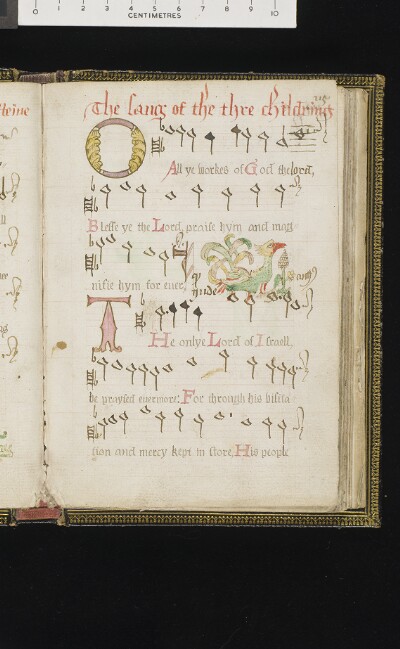 0 1 2 3 4 5 6 7 8 9 10
CENTIMETRES
The sang of the thre children
O
All ye workes of God the lord,
Blesse ye the Lord, praise hym and mag
nifie hym for ever,
T
He onlye Lord of Israell,
be praysed evermore: For through his visita
sion and mercy kept in store, His people